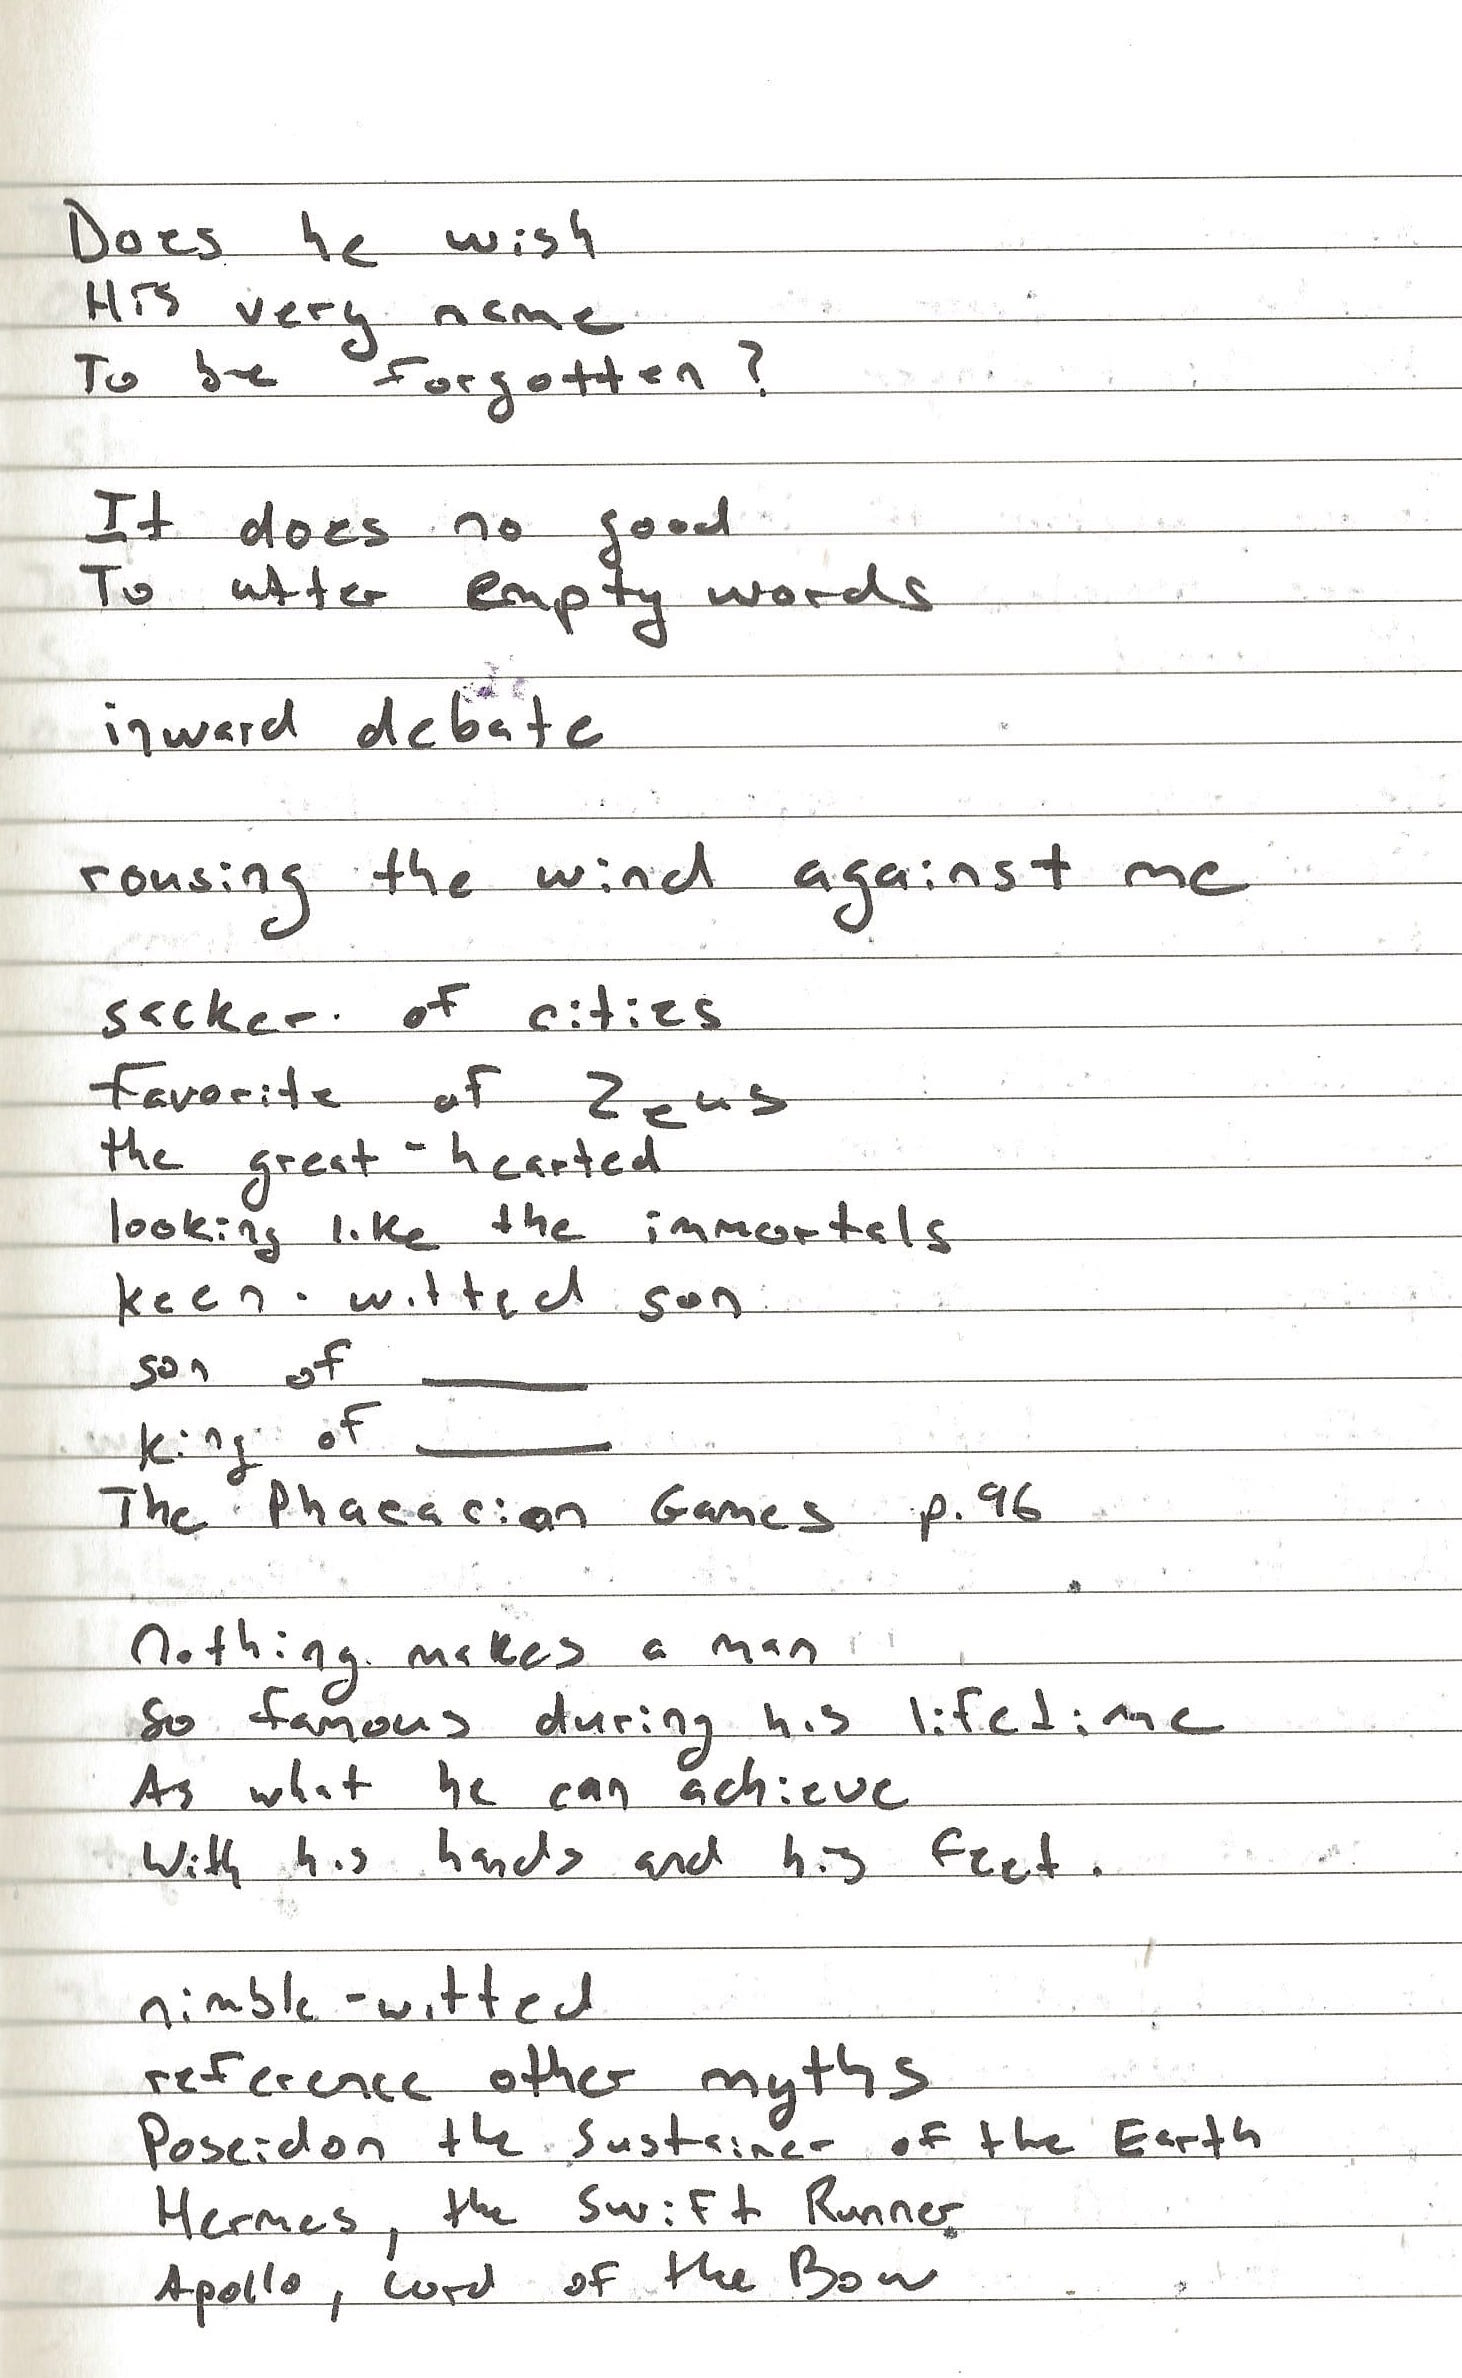 Does he wish
His very name
To be forgotten?
It does no good
To utter empty words
inward debate
rousing the wind against me
sacker of cities
Favorite of Zeus
the great-hearted
looking like the immortals
keen-witted son
son of ____
king of ____
The Phaeacian Games p. 96
Nothing makes a man
So famous during his lifetime
As what he can achieve
With his hands and his feet.
nimble-witted
reference other myths
Poseidon the Sustainer of the Earth
Hermes, the Swift Runner
Apollo, Lord of the Bow